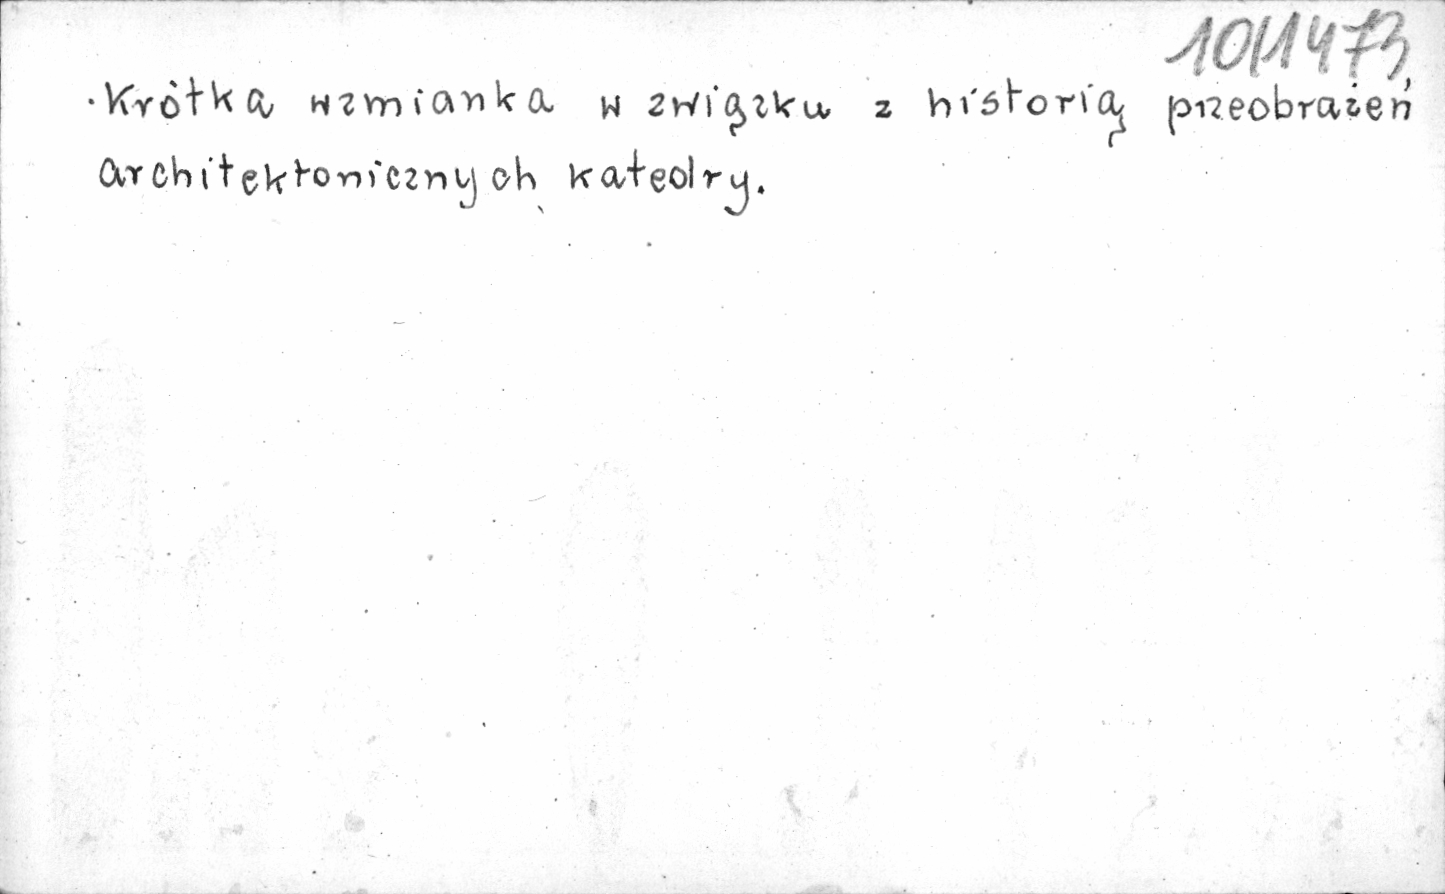 1011473
Krótka wzmianka w związku z historią przeobrażeń
architektonicznych katedry.